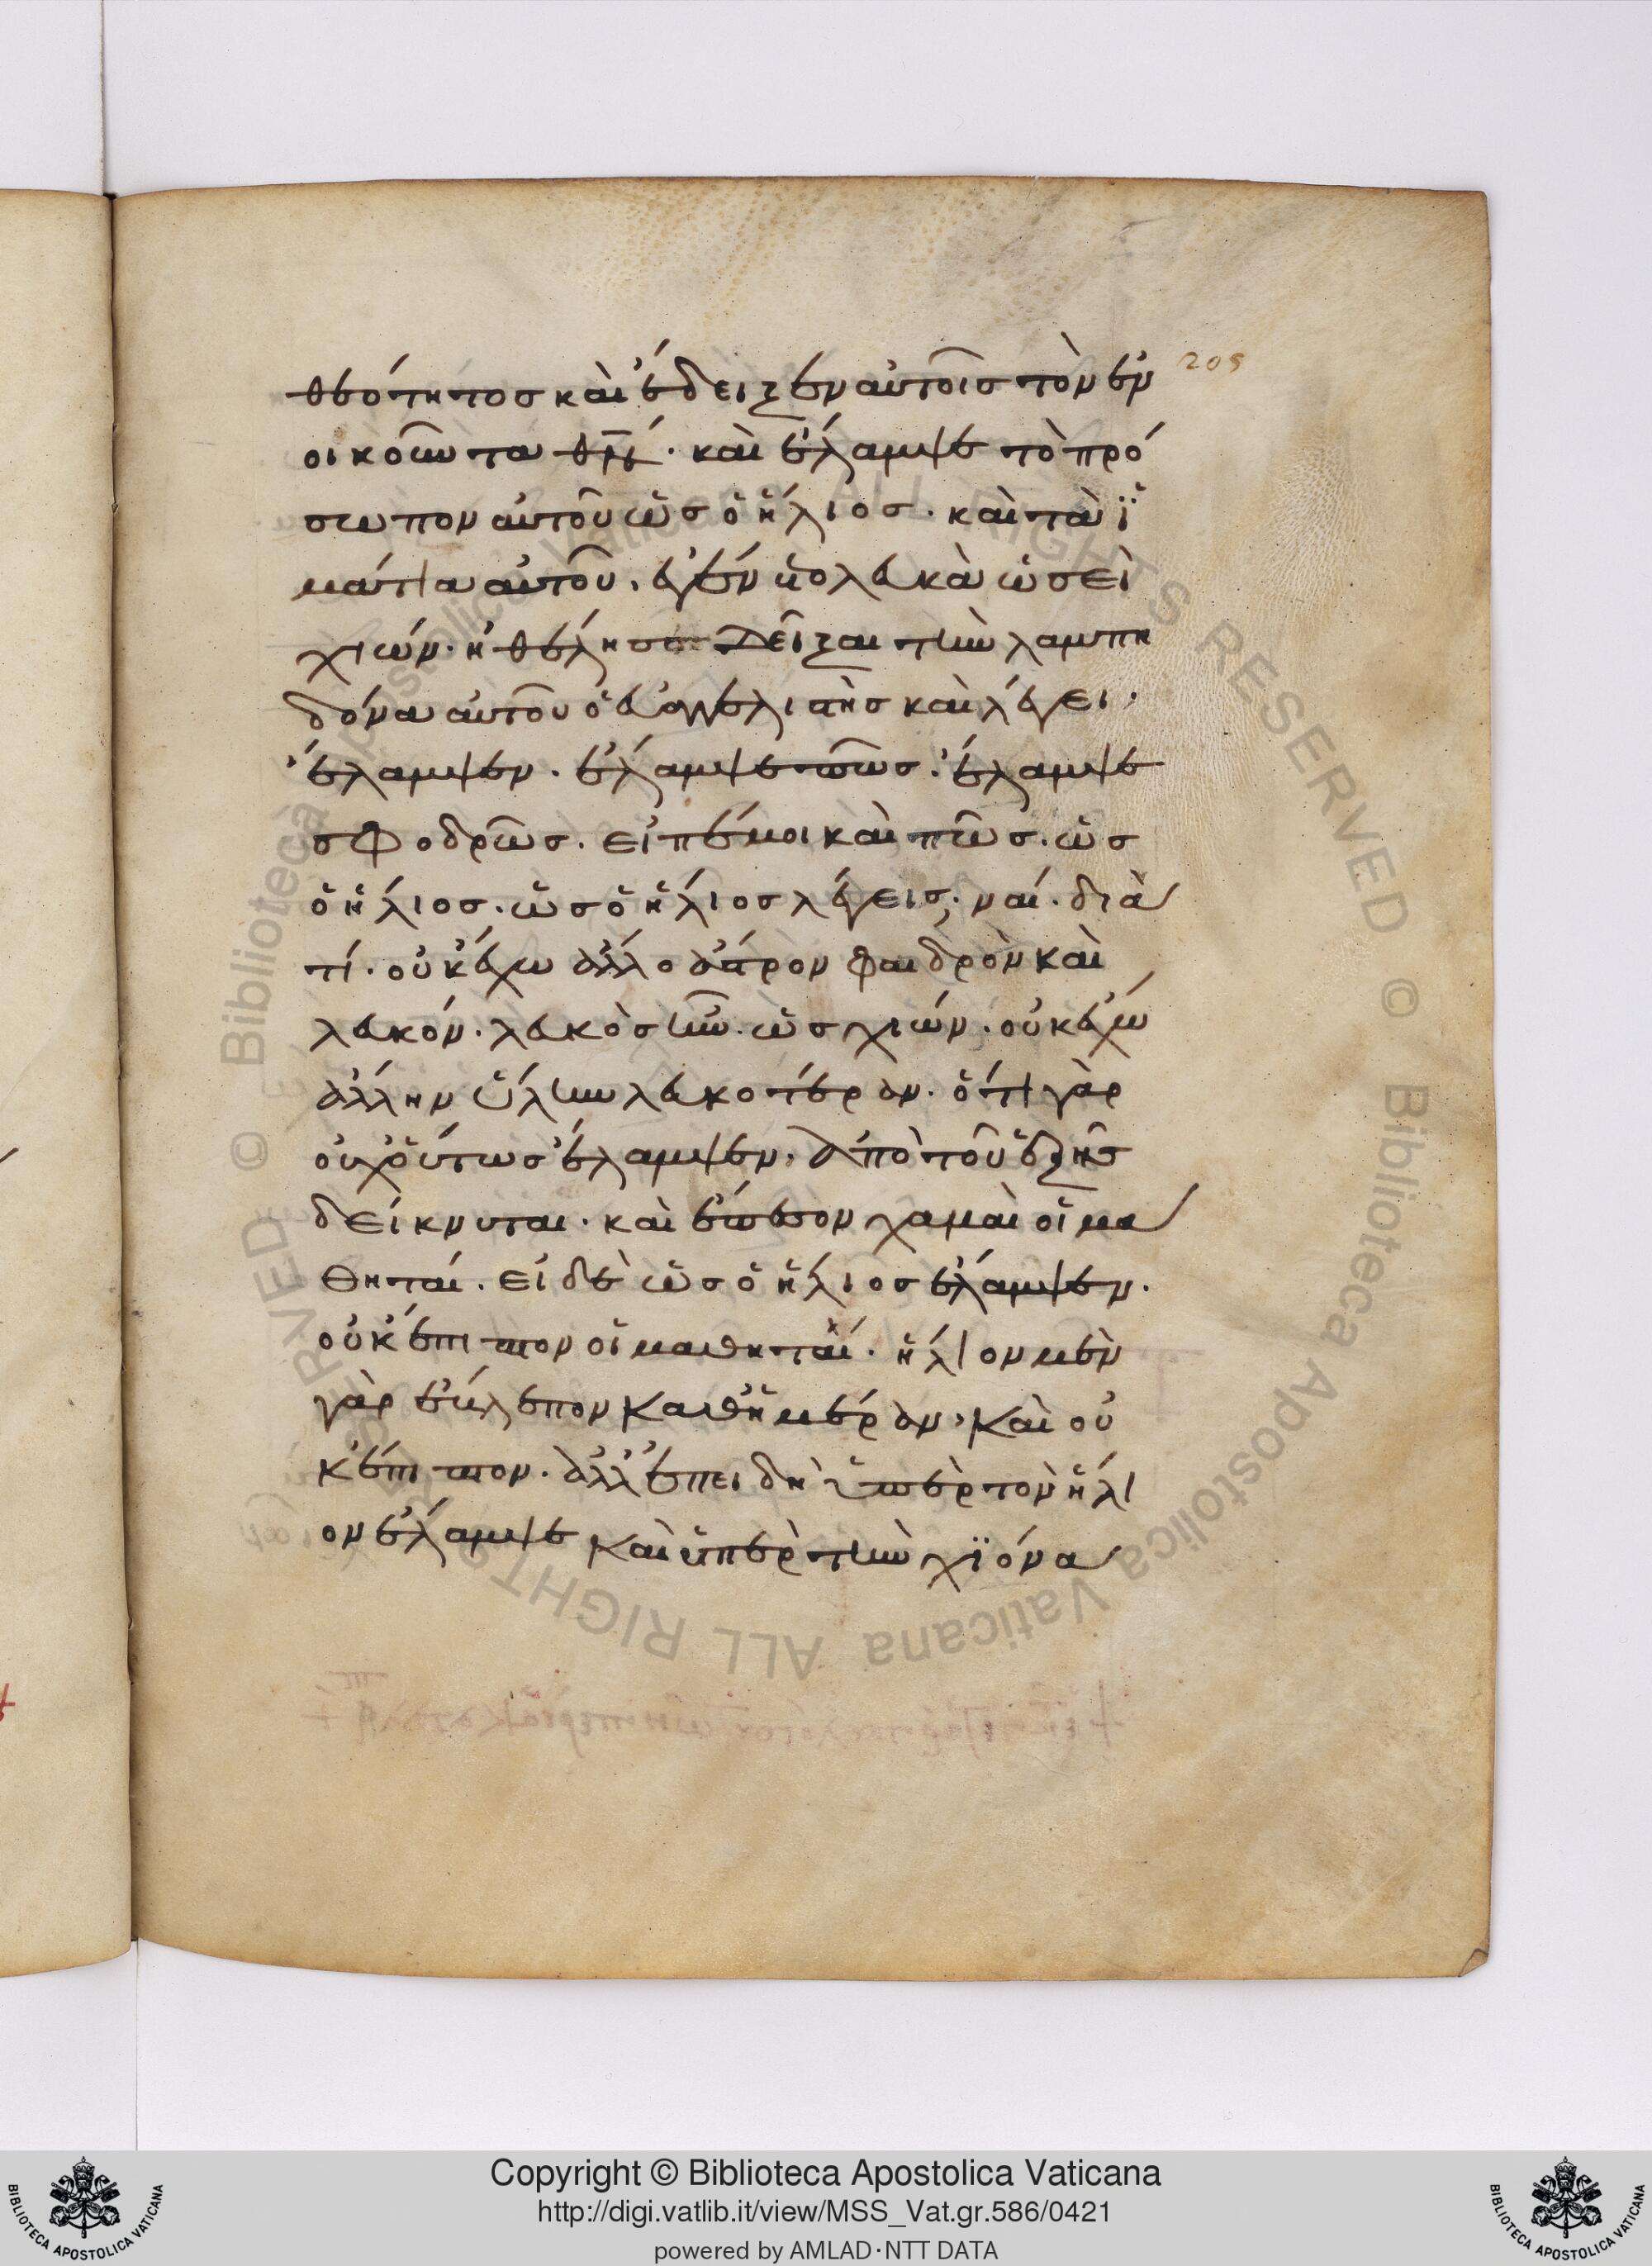 205
θεότητος καὶ ἔδειξεν αὐτοῖς τὸν ἐν
οικοῦντα θν̅. καὶ ἔλαμψε τὸ πρό
σωπον αὐτοῦ ὡς ὁ ἥλιος. καὶ τὰ ἱ
μάτια αὐτοῦ. ἐγένετο λευκὰ ὡσεὶ
χιών. ἠθέλησε δεῖξαι τὴν λαμπη
δόνα αὐτοῦ ὁ εὐαγγελιστὴς καὶ λέγει.
ἔλαμψεν. ἔλαμψε πῶς. ἔλαμψε
σφοδρῶς. εἰπέ μοι καὶ πῶς. ὡς
ὁ ἥλιος. ὡς ὁ ἥλιος λέγεις. ναί. διὰ
τί. οὐκ ἔχω ἄλλο ἄστρον φαιδρὸν καὶ
λευκόν. λευκὸς ἦν. ὡς χιών. οὐκ ἔχω
ἄλλην ὕλην λευκοτέραν. ὅτι γὰρ
οὐχ οὕτως ἔλαμψεν. ἀπὸ τοῦ ἑξῆς
δείκνυται. καὶ ἔπεσον χαμαὶ οἱ μα
θηταί. εἰ δὲ ὡς ὁ ἥλιος ἔλαμψεν.
οὐκ ἔπιπτον οἱ μαθηταί. ἥλιον μὲν
γὰρ ἔβλεπον καθ' ἡμέραν, καὶ οὐ
κ ἔπιπτον. ἀλλ' ἐπειδὴ ὑπὲρ τὸν ἥλι
ον ἔλαμψε καὶ ὑπὲρ τὴν χϊόνα
© Biblioteca Apostolica Vaticana ALL RIGHTS RESERVED © Biblioteca Apostolica Vaticana ALL RIGHTS RESERVED
Copyright © Biblioteca Apostolica Vaticana
http://digi.vatlib.it/view/MSS_Vat.gr.586/0421
powered by AMLAD·NTT DATA
BIBLIOTECA APOSTOLICA VATICANA
BIBLIOTECA APOSTOLICA VATICANA